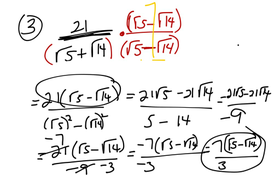 ③ 21/(√5 + √14) • (√5 - √14)/(√5 - √14)
= 21(√5 - √14)/((√5)² - (√14)²) = (21√5 - 21√14)/(5 - 14) = (-21√5 - 21√14)/-9
= -7 21(√5 - √14)/(-9 -3) = -7(√5 - √14)/3 = -7(√5 - √14)/3